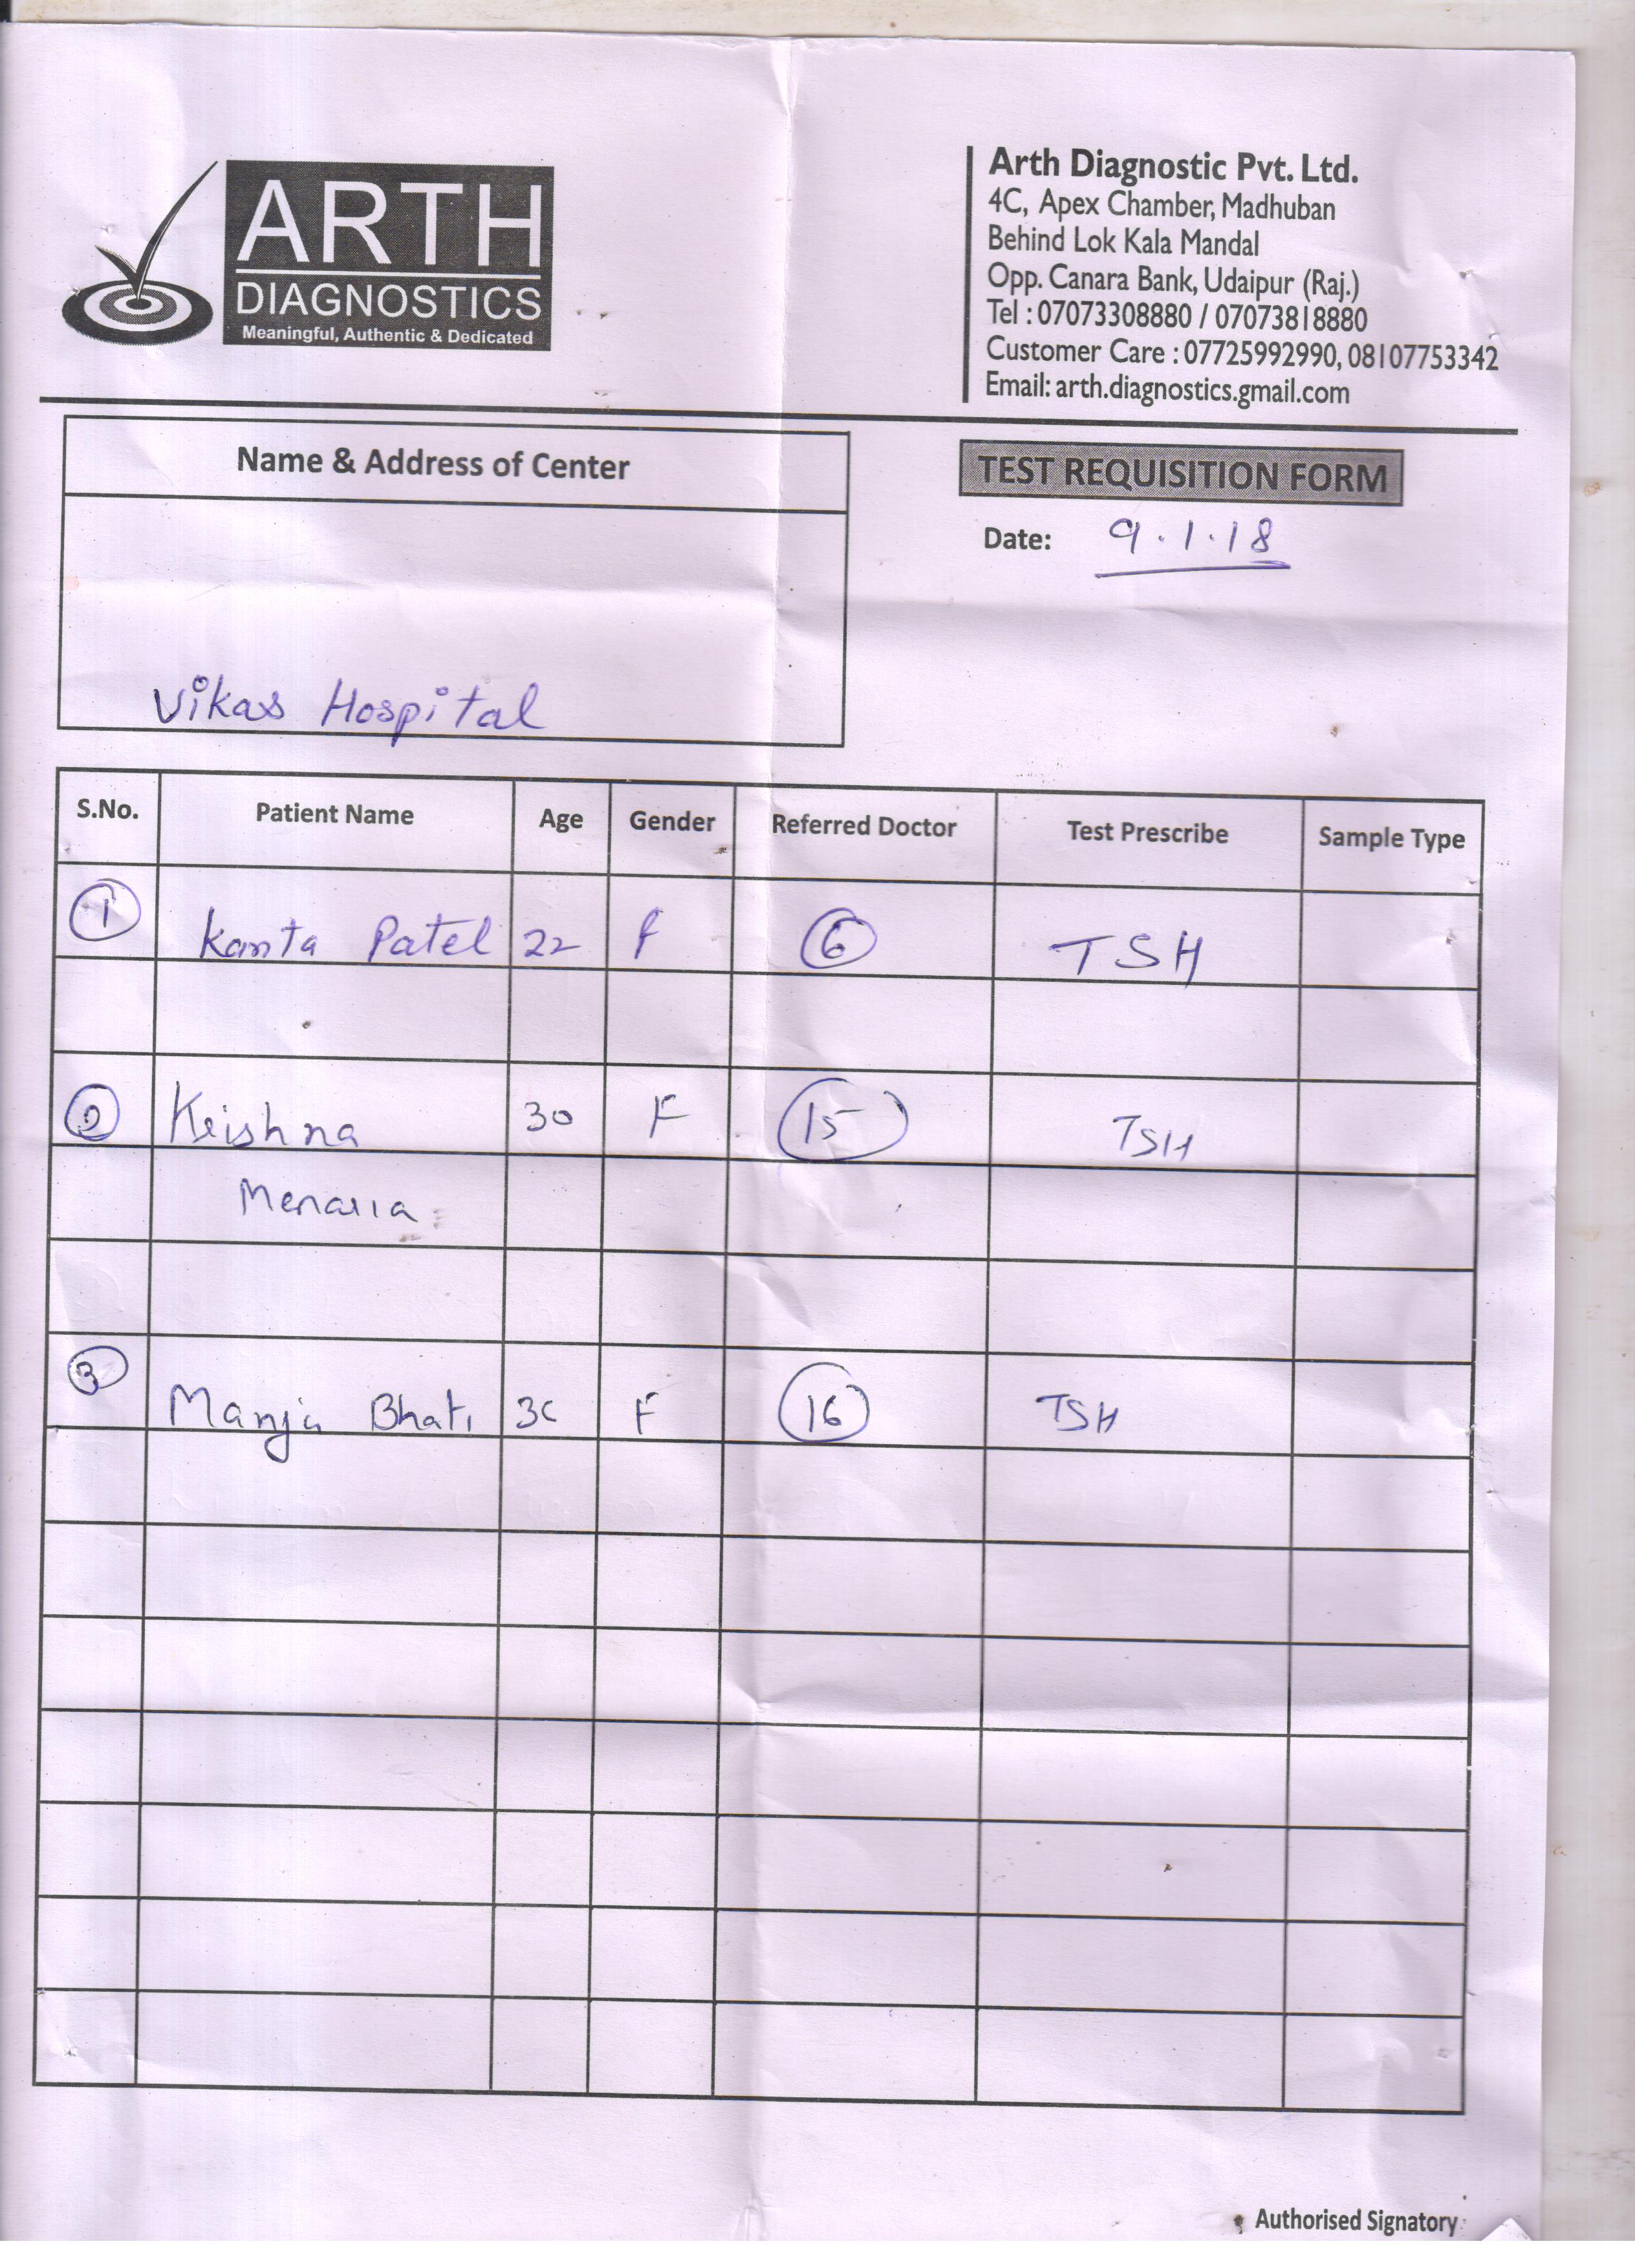 ARTH
DIAGNOSTICS
Meaningful, Authentic & Dedicated
Arth Diagnostic Pvt. Ltd.
4C, Apex Chamber, Madhuban
Behind Lok Kala Mandal
Opp. Canara Bank, Udaipur (Raj.)
Tel : 07073308880 / 07073818880
Customer Care : 07725992990, 08107753342
Email: arth.diagnostics.gmail.com
Name & Address of Center
TEST REQUISITION FORM
Date: 9.1.18
Vikas Hospital
S.No. Patient Name Age Gender Referred Doctor Test Prescribe Sample Type
1 Kanta Patel 22 f 6 TSH
2 Krishna 30 F 15 TSH
Menaria
3 Manju Bhati F 16 TSH
Authorised Signatory